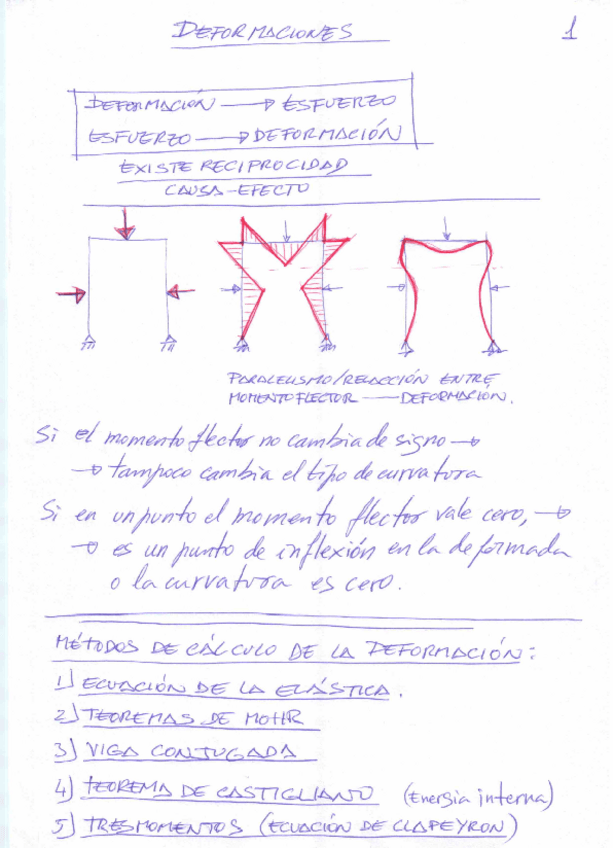 DEFORMACIONES
1
DEFORMACIÓN → ESFUERZO
ESFUERZO → DEFORMACIÓN
EXISTE RECIPROCIDAD
CAUSA-EFECTO
PARALELISMO/RELACCIÓN ENTRE
MOMENTO FLECTOR — DEFORMACION.
Si el momento flector no cambia de signo →
→ tampoco cambia el tipo de curvatura
Si en un punto el momento flector vale cero, →
→ es un punto de inflexión en la deformada
o la curvatura es cero.
MÉTODOS DE CÁLCULO DE LA DEFORMACIÓN:
1) ECUACIÓN DE LA ELÁSTICA.
2) TEOREMAS DE MOHR
3) VIGA CONJUGADA
4) TEOREMA DE CASTIGLIANO (Energia interna)
5) TRES MOMENTOS (ECUACIÓN DE CLAPEYRON)